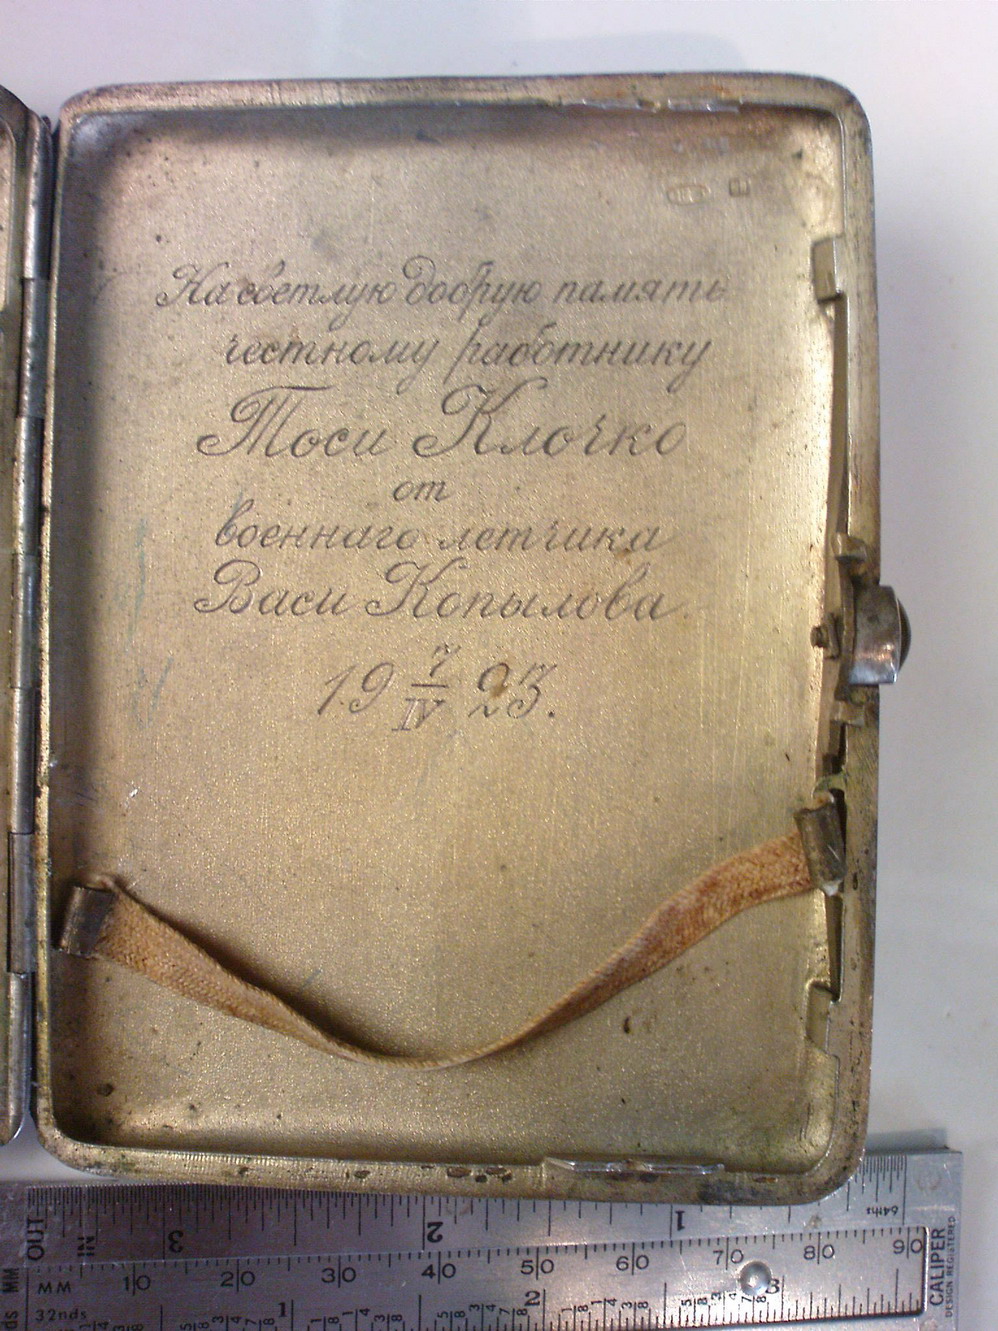 На светлую добрую память
честному работнику
Тоси Клочко
от
военнаго летчика
Васи Копылова
19 7/IV 23.
3 2 1 64ths
OUT IN
MM 10 20 30 40 50 60 70 80 90
32nds 1 2 3
CALIPER
DESIGN REGISTERED